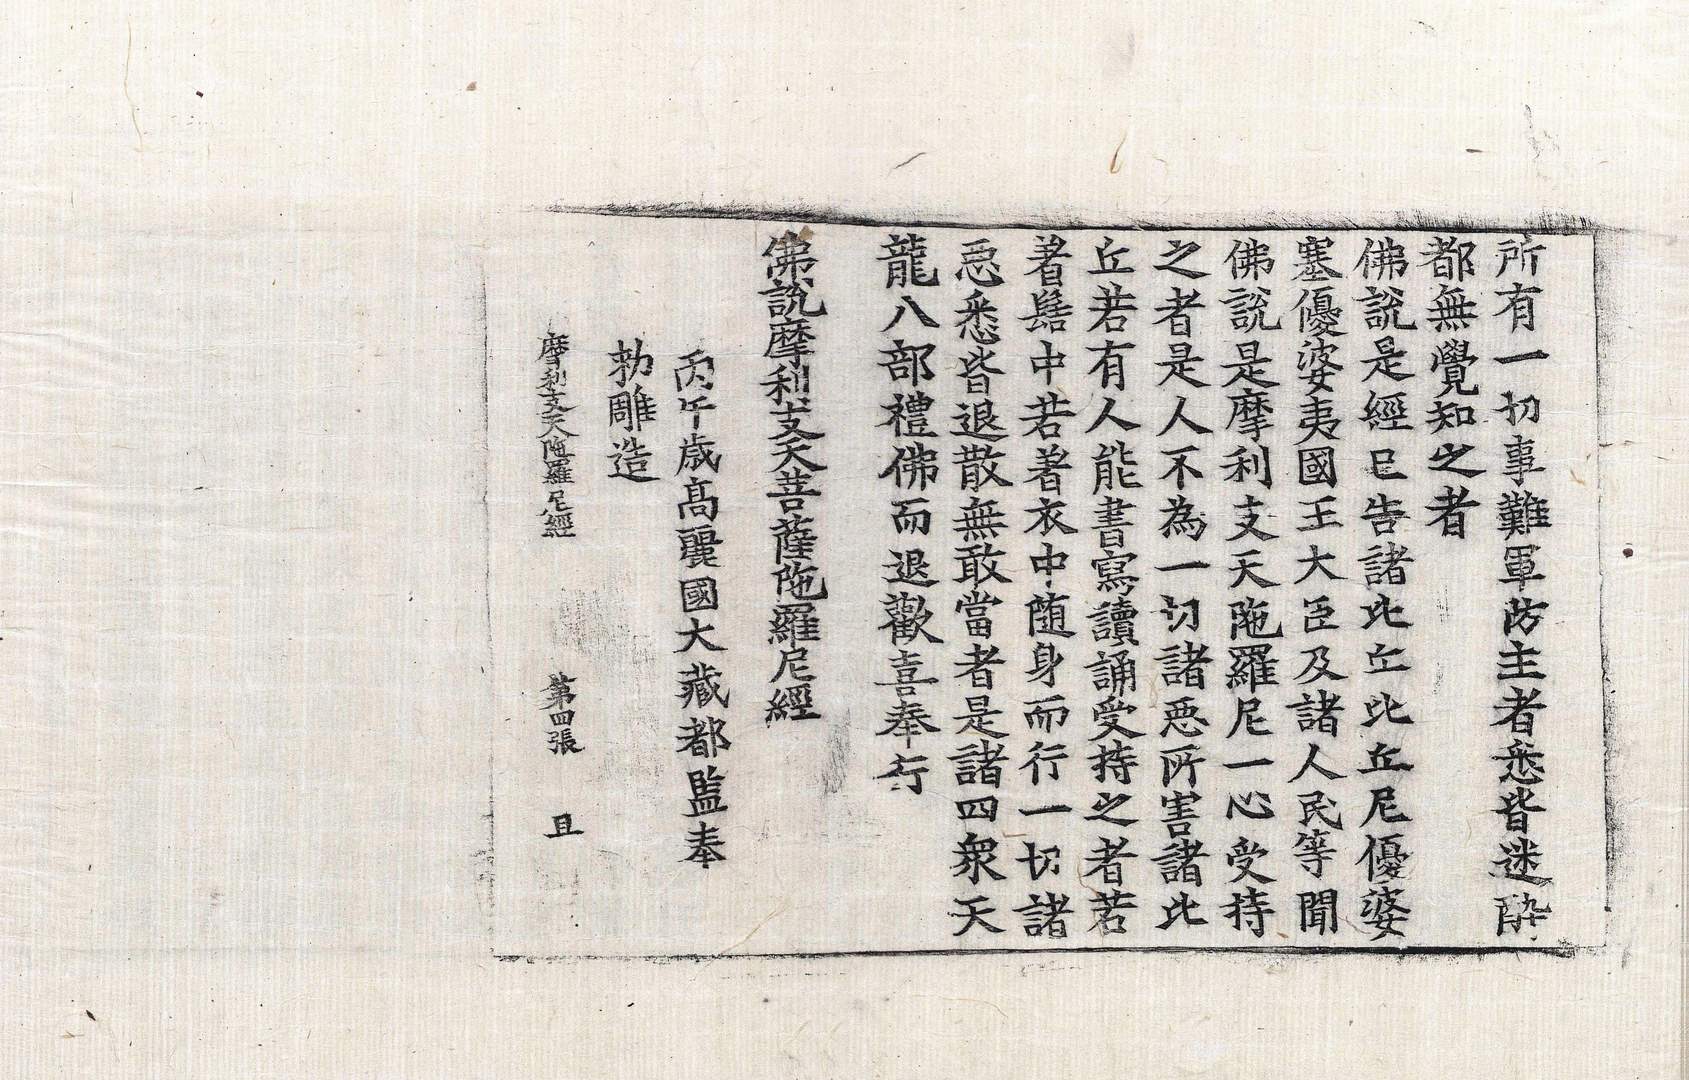 所有一切事難軍防主者悉皆迷醉
都無覺知之者
佛說是經已告諸比丘比丘尼優婆
塞優婆夷國王大臣及諸人民等聞
佛說是摩利支天陁羅尼一心受持
之者是人不為一切諸惡所害諸比
丘若有人能書寫讀誦受持之者若
著髻中若著衣中随身而行一切諸
惡悉皆退散無敢當者是諸四衆天
龍八部禮佛而退歡喜奉行
佛說摩利支天菩薩陁羅尼經
丙午歲高麗國大藏都監奉
勑雕造
摩利支天陁羅尼經 第四張 且